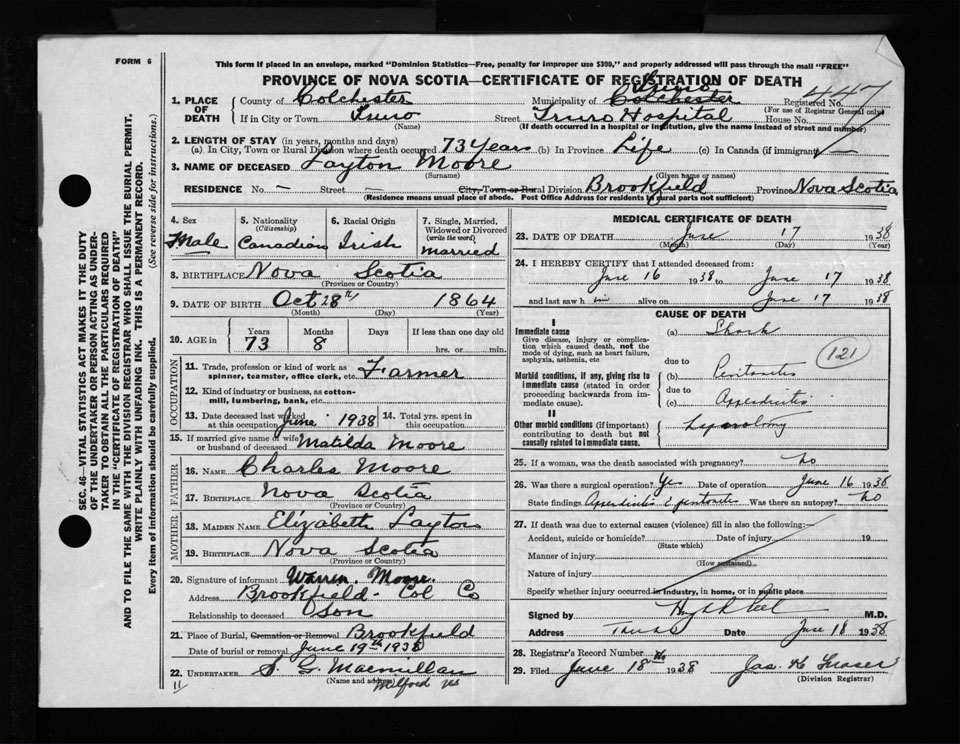 FORM 6
This form if placed in an envelope, marked "Dominion Statistics—Free, penalty for improper use $300," and properly addressed will pass through the mail "FREE"
PROVINCE OF NOVA SCOTIA—CERTIFICATE OF REGISTRATION OF DEATH
1. PLACE OF DEATH County of Colchester Municipality of Truro Colchester Registered No. 447
(For use of Registrar General only)
If in City or Town Truro Street Truro Hospital House No.
(Name) (If death occurred in a hospital or institution, give the name instead of street and number)
2. LENGTH OF STAY (in years, months and days)
(a) In City, Town or Rural Division where death occurred 73 Years (b) In Province Life (c) In Canada (if immigrant) —
3. NAME OF DECEASED Layton Moore
(Surname) (Given name or names)
RESIDENCE No. — Street — City, Town or Rural Division Brookfield Province Nova Scotia
(Residence means usual place of abode. Post Office Address for residents in rural parts not sufficient)
4. Sex Male
5. Nationality (Citizenship) Canadian
6. Racial Origin Irish
7. Single, Married, Widowed or Divorced (write the word) married
8. BIRTHPLACE Nova Scotia
(Province or Country)
9. DATE OF BIRTH Oct 28th 1864
(Month) (Day) (Year)
10. AGE in Years 73 Months 8 Days If less than one day old hrs. or min.
OCCUPATION
11. Trade, profession or kind of work as spinner, teamster, office clerk, etc. Farmer
12. Kind of industry or business, as cotton-mill, lumbering, bank, etc.
13. Date deceased last worked at this occupation June 1938 14. Total yrs. spent in this occupation
15. If married give name of wife or husband of deceased Matilda Moore
FATHER
16. NAME Charles Moore
17. BIRTHPLACE Nova Scotia
(Province or Country)
MOTHER
18. MAIDEN NAME Elizabeth Layton
19. BIRTHPLACE Nova Scotia
(Province or Country)
20. Signature of informant Warren Moore
Address Brookfield - Col Co
Relationship to deceased Son
21. Place of Burial, Cremation or Removal Brookfield
Date of burial or removal June 19th 1938
22. UNDERTAKER S. G. Macmillan
(Name and address) Milford
11
MEDICAL CERTIFICATE OF DEATH
23. DATE OF DEATH June 17 1938
(Month) (Day) (Year)
24. I HEREBY CERTIFY that I attended deceased from:
June 16 1938 to June 17 1938
and last saw h im alive on June 17 1938
CAUSE OF DEATH
I
Immediate cause (a) Shock
Give disease, injury or complication which caused death, not the mode of dying, such as heart failure, asphyxia, asthenia, etc
due to
121
Morbid conditions, if any, giving rise to immediate cause (stated in order proceeding backwards from immediate cause). (b) Peritonitis
due to
(c) Appendicitis
II
Other morbid conditions (if important) contributing to death but not causally related to immediate cause. Laparotomy
25. If a woman, was the death associated with pregnancy? no
26. Was there a surgical operation? Yes Date of operation June 16 1938
State findings Appendicitis & peritonitis Was there an autopsy? no
27. If death was due to external causes (violence) fill in also the following:—
Accident, suicide or homicide? Date of injury 19
(State which)
Manner of injury
(How sustained)
Nature of injury
Specify whether injury occurred in industry, in home, or in public place
Signed by M.D.
Address Truro Date June 18 1938
28. Registrar's Record Number
29. Filed June 18th 1938 Jas. H Fraser
(Division Registrar)
SEC. 46—VITAL STATISTICS ACT MAKES IT THE DUTY
OF THE UNDERTAKER OR PERSON ACTING AS UNDERTAKER
TO OBTAIN ALL THE PARTICULARS REQUIRED
IN THE "CERTIFICATE OF REGISTRATION OF DEATH"
AND TO FILE THE SAME WITH THE DIVISION REGISTRAR WHO SHALL ISSUE THE BURIAL PERMIT.
WRITE PLAINLY WITH UNFADING INK. THIS IS A PERMANENT RECORD.
Every item of information should be carefully supplied. (See reverse side for instructions.)